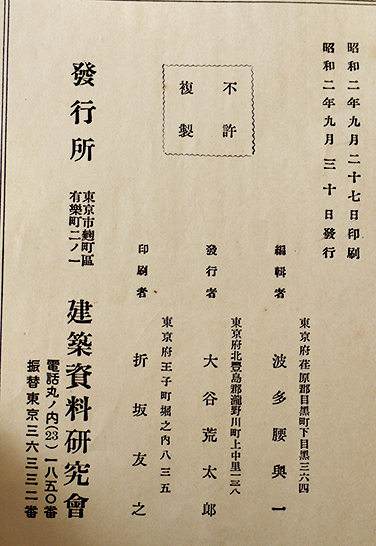 昭和二年九月二十七日印刷
昭和二年九月三十日發行
不許
複製
東京府荏原郡目黑町下目黑三六四
編輯者 波多腰與一
東京府北豐島郡瀧野川町上中里一三八
發行者 大谷荒太郎
東京府王子町堀之内八三五
印刷者 折坂友之
發行所
東京市麴町區
有樂町二ノ一
建築資料研究會
電話丸ノ内(23)一八五〇番
振替東京三六三三二番